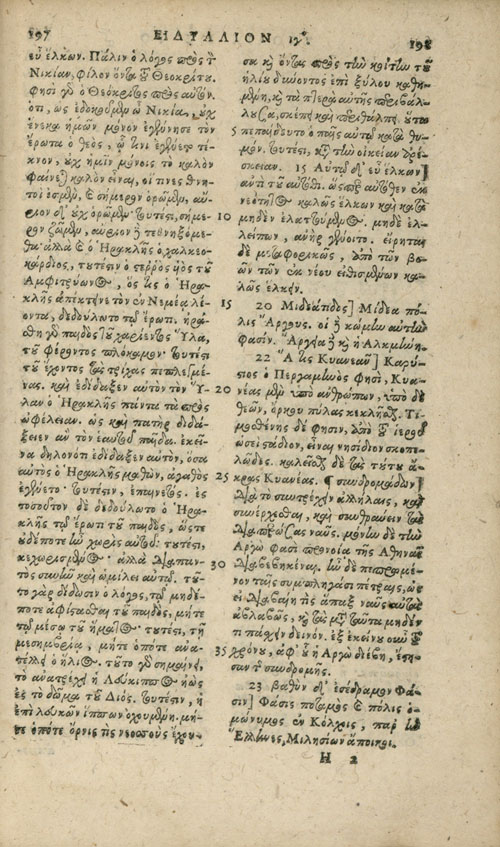 197 ΕΙΔΥΛΛΙΟΝ ιγʹ. 198
εὖ ἕλκων. Πάλιν ὁ λόγος πρὸς τὸν
Νικίαν, φίλον ὄντα τοῦ Θεοκρίτου.
φησὶ γὰρ ὁ Θεόκριτος πρὸς αὐτόν.
ὅτι, ὡς ἐδοκοῦμεν ὦ Νικία, οὐχ
ἕνεκα ἡμῶν μόνον ἐγέννησε τὸν
ἔρωτα ὁ θεὸς, ᾧ τινι ἐγένετο τέκνον,
οὐχ ἡμῖν μόνοις τὸ καλὸν
φαίνεται καλὸν εἶναι, οἵ τινες θνητοί
ἐσμεν, καὶ σήμερον ὁρῶμεν, αὔριον
δ' οὐχ ὁρῶμεν τουτέστι, σήμερον
ζῶμεν, αὔριον δὲ τεθνηξόμεθα.
ἀλλὰ καὶ ὁ Ἡρακλῆς ὁ χαλκεοκάρδιος,
τουτέστιν ὁ στερρὸς υἱὸς τοῦ
Ἀμφιτρύωνος, ὃς καὶ ὁ Ἡρακλῆς
ἀπέκτεινε τὸν ἐν Νεμέᾳ λέοντα,
δεδούλωτο τῷ ἔρωτι. ἠράσθη
γὰρ παιδὸς τοῦ χαρίεντος Ὕλα,
τοῦ φέροντος πλόκαμον· τουτέστι
τοῦ ἔχοντος τὰς τρίχας πεπλεγμένας.
καὶ ἐδίδαξεν αὐτὸν τὸν Ὕλαν
ὁ Ἡρακλῆς πάντα τὰ πρὸς
ὠφέλειαν. ὡς καὶ πατὴρ διδάξειεν
ἂν τὸν ἑαυτοῦ παῖδα. ἐκεῖνα
δηλονότι ἐδίδαξεν αὐτὸν, ὅσα
αὐτὸς ὁ Ἡρακλῆς μαθὼν, ἀγαθὸς
ἐγένετο· τουτέστιν, ἐπαινετός. ἐς
τοσοῦτον δὲ δεδούλωτο ὁ Ἡρακλῆς
τῷ ἔρωτι τοῦ παιδὸς, ὥστε
οὐδέποτε ἦν χωρὶς αὐτοῦ· τουτέστι,
κεχωρισμένος· ἀλλὰ διαπαντὸς
συνῆν καὶ ὡμίλει αὐτῷ. τοῦτο
γὰρ δίδωσιν ὁ λόγος, τῷ μηδέποτε
ἀφίστασθαι τοῦ παιδὸς, μήτε
τῷ μέσῳ τοῦ ἥματος· τουτέστι, τῇ
μεσημβρίᾳ, μήτε ὁπότε ἀνατέλλει
ὁ ἥλιος. τοῦτο γὰρ σημαίνει,
τὸ ἀνατρέχῃ ἡ λεύκιππος ἠὼς
ἐς τὸ δῶμα τοῦ Διός. τουτέστιν, ἡ
ἐπὶ λευκῶν ἵππων ὀχουμένη. μήτε
ὁπότε ὄρνις τις νεοσσοὺς ἔχουσα
καὶ ὄντας πρὸς τὴν κοίτην τοῦ
ἡλίου δύνοντος ἐπὶ ξύλου καθημένη,
καὶ τὰ πτερὰ αὐτῆς περιβάλλουσα,
σκέπῃ καὶ περιθάλπῃ. οὕτω
5 πεπαίδευτο ὁ παῖς αὐτῷ κατὰ θυμόν.
τουτέστι, κατὰ τὴν οἰκείαν ἀρέσκειαν.
15 Αὐτῷ δ' εὖ ἕλκων]
ἀντὶ τοῦ αὐτόθι. ὥσπερ αὐτόθεν ἐκ
νεότητος καλῶς ἕλκων καὶ κατὰ
10 μηδὲν ἐλαττούμενος. μηδὲ ἐλλείπων,
ἀνὴρ γένοιτο. εἴρηται
δὲ μεταφορικῶς, ἀπὸ τῶν βοῶν
τῶν ἐκ νέου εἰθισμένων καλῶς
ἕλκειν.
15 20 Μιδεάτιδος] Μίδεα πόλις
Ἄργους. οἱ δὲ κώμην αὐτήν
φασιν. Ἀργεία δὲ καὶ ἡ Ἀλκμήνη.
22 Ἅτις Κυανεᾶν] Καρύστιος
ὁ Περγαμηνὸς φησὶ, Κυανέας
20 μὲν ὑπὸ ἀνθρώπων, ὑπὸ δὲ
θεῶν, ὅρκου πύλας κεκλῆσθαι. Τιμοσθένης
δέ φησιν, ἀπὸ τοῦ ἱεροῦ
ὡσεὶ στάδιον, εἶναι νησίδιον σκοπελῶδες.
καλεῖσθαι δὲ τὰς τούτου ἄκρας
25 Κυανέας. ¶ συνδρομάδων]
Διὰ τὸ συντρέχειν ἀλλήλαις, καὶ
συνέρχεσθαι, καὶ συνθραύειν τὰς
διαπλεούσας ναῦς. μόνην δὲ τὴν
Ἀργώ φασι προνοίᾳ τῆς Ἀθηνᾶς
30 διαβεβηκέναι. ἦν δὲ πεπρωμένον
ταῖς συμπληγάσι πέτραις, ὡς
εἰ διαβαίη τις ἅπαξ ναῦς αὐτὰς
ἀβλαβῶς, καὶ τὰς μετὰ ταῦτα μηδέν
τι πάσχειν δεινόν. ἐξ ἐκείνου οὖν τοῦ
35 χρόνου, ἀφ' οὗ ἡ Ἀργὼ διέβη, ἔστησαν
τῆς συνδρομῆς.
23 βαθὺν δ' εἰσέδραμεν Φάσιν]
Φάσις ποταμὸς καὶ πόλις ὁμώνυμος
ἐν Κόλχοις, παρ' ᾗ
Ἕλληνες, Μιλησίων ἄποικοι.
H 2